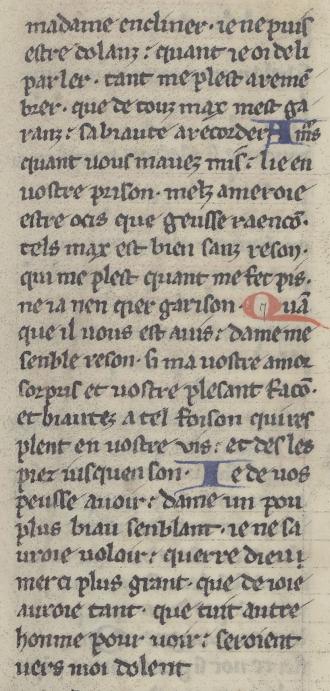 madame encliner · ie ne puis
estre dolanz : quant ie oi de li
parler · tant me plest a remē
brer · que de touz max mest ga
ranz : sa biaute a recorder Amis
quant vous mauez mis : lie en
vostre prison · melz ameroie
estre ocis que geusse raencō ·
tels max est bien sanz reson ·
qui me plest quant me fet pis ·
ne ia nen qier garison · Quā
que il vous est auis : dame me
senble reson · si ma vostre amor
sorpris et vostre plesant facō ·
et biautez a tel foison qui res
plent en vostre vis : et des les
piez iusquen son · Ie de vos
peusse auoir : dame un pou
plus biau senblant · ie ne sa
uroie voloir : querre dieu
merci plus grant · que de ioie
auroie tant · que tuit autre
homme pour voir : seroient
vers moi dolent